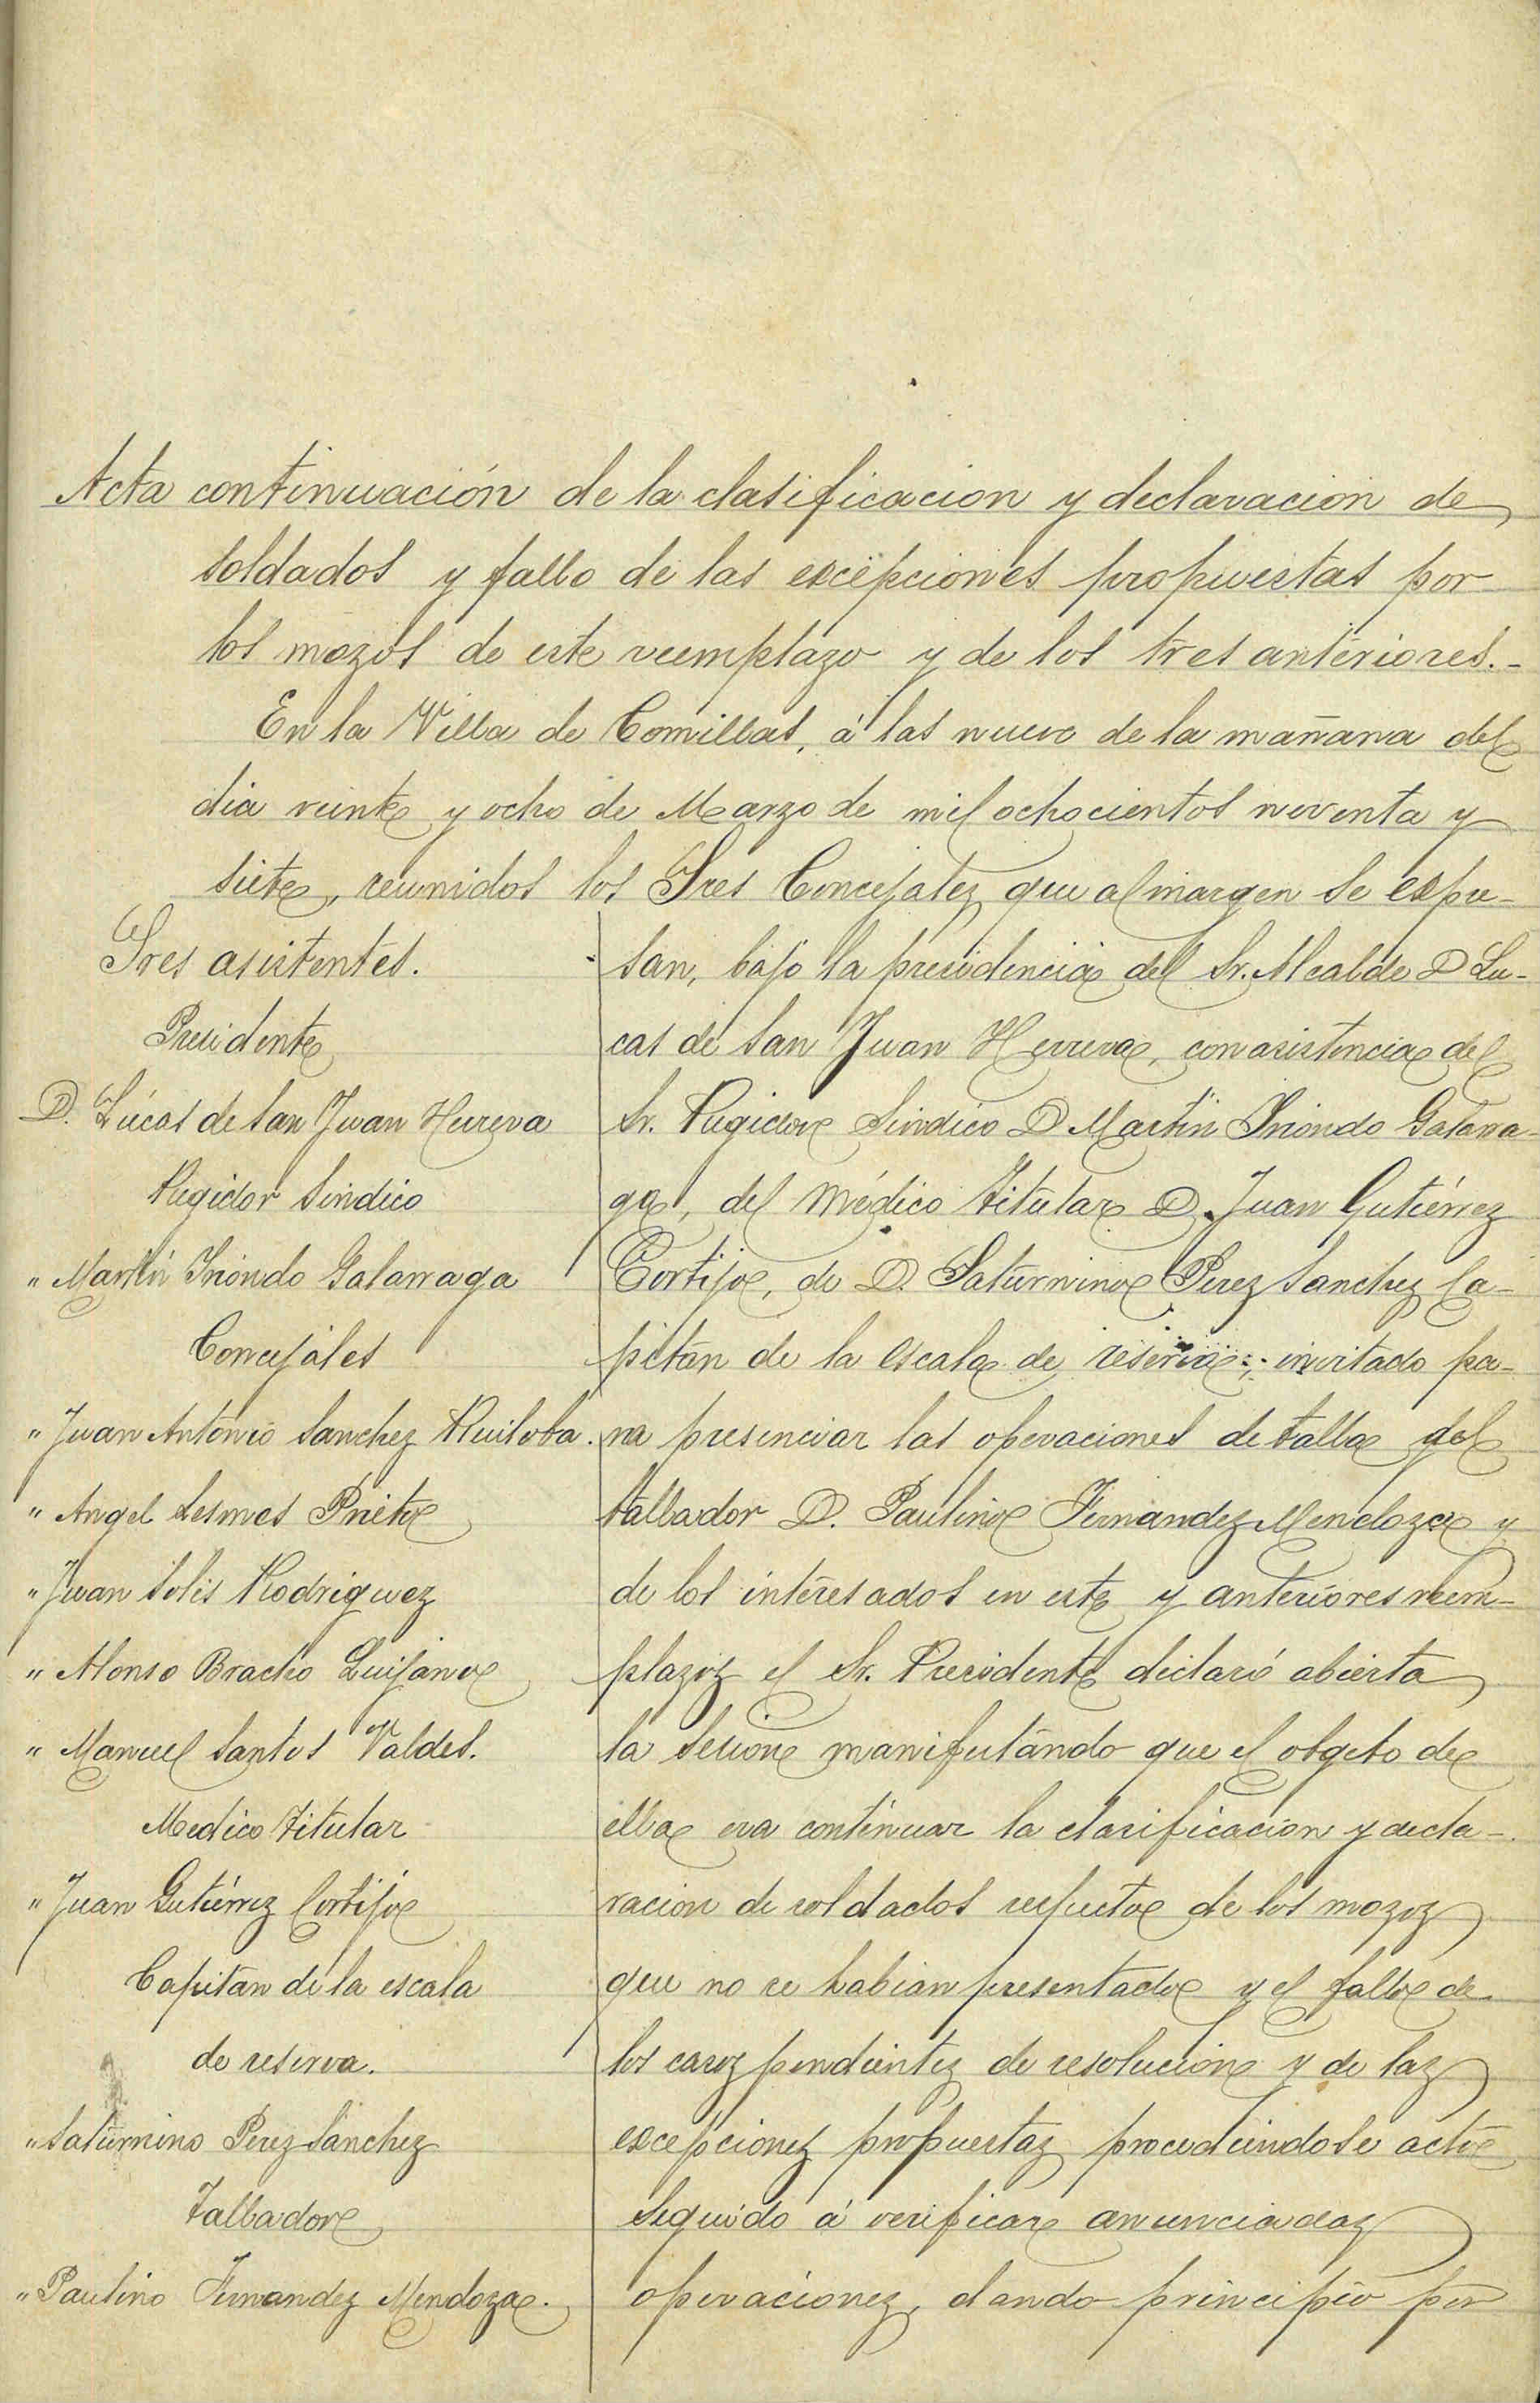 Acta continuación de la clasificacion y declaracion de
soldados y fallo de las excepciones propuestas por
los mozos de este reemplazo y de los tres anteriores.-
En la Villa de Comillas, á las nueve de la mañana del
dia veinte y ocho de Marzo de mil ochocientos noventa y
siete, reunidos los Sres Concejales que al margen se expre-
Sres asistentes.
Presidente
D. Lúcas de San Juan Herrera
Regidor Sindico
" Martin Iriondo Galarraga
Concejáles
" Juan Antonio Sanchez Ruiloba.
" Angel Lesmes Prieto
" Juan Solis Rodriguez
" Alonso Bracho Quijano
" Manuel Santos Valdes.
Medico Titular
" Juan Gutiérrez Cortijo
Capitan de la escala
de reserva.
" Saturnino Perez Sanchez
Tallador
" Paulino Fernandez Mendoza.
san, bajo la presidencia del Sr. Alcalde D Lu-
cas de San Juan Herrera, con asistencia del
Sr. Regidor Sindico D Martin Iriondo Galarra-
ga, del Médico Titular D. Juan Gutiérrez
Cortijo, de D. Saturnino Perez Sanchez Ca-
pitán de la escala de reserva, invitado pa-
ra presenciar las operaciones de talla del
tallador D. Paulino Fernandez Mendoza y
de los interesados en este y anteriores reem-
plazos el Sr. Presidente declaró abierta
la sesion manifestándo que el obgeto de
ella era continuar la clasificacion y decla-
racion de soldados respecto de los mozos
que no se habian presentado y el fallo de
los casos pendientes de resolucion y de las
excepciones propuestas procediendose acto
seguido á verificar anunciadas
operaciones, dando principio por